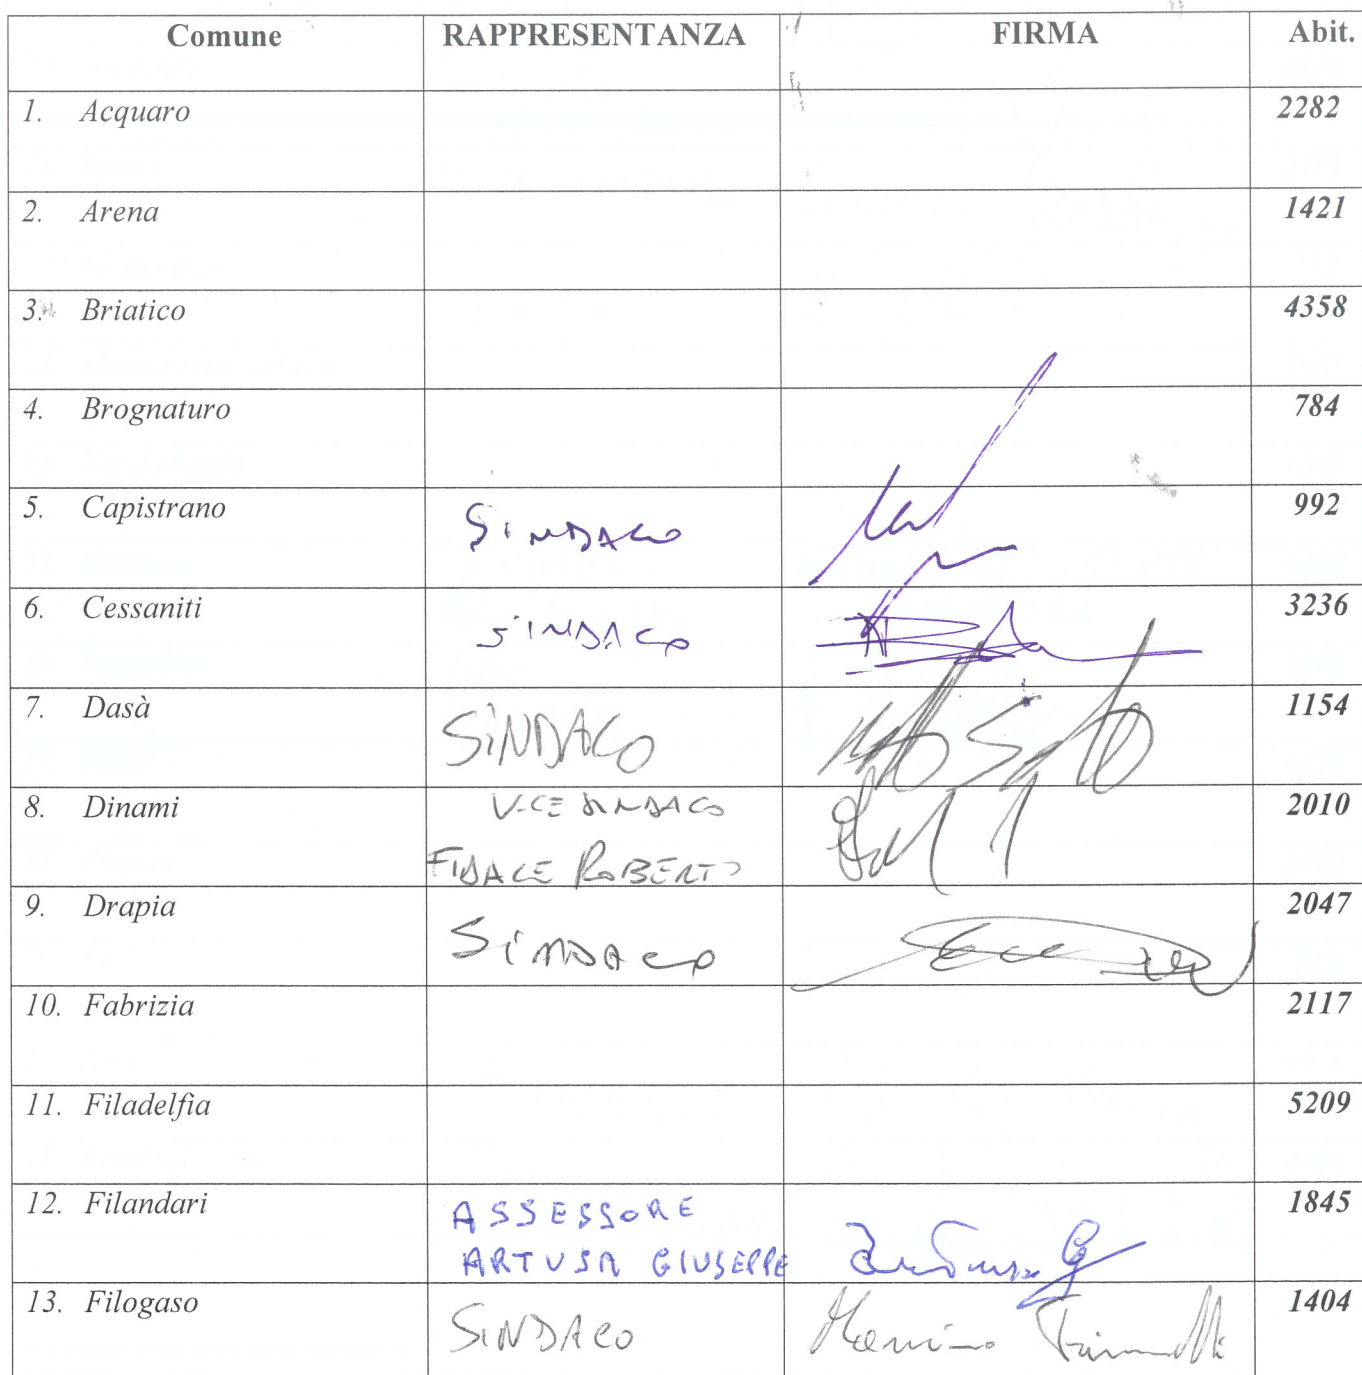 Comune RAPPRESENTANZA FIRMA Abit.
1. Acquaro 2282
2. Arena 1421
3. Briatico 4358
4. Brognaturo 784
5. Capistrano SINDACO 992
6. Cessaniti SINDACO 3236
7. Dasà SINDACO 1154
8. Dinami VICE SINDACO 2010
FIDACE ROBERTO
9. Drapia SINDACO 2047
10. Fabrizia 2117
11. Filadelfia 5209
12. Filandari ASSESSORE 1845
ARTUSA GIUSEPPE
13. Filogaso SINDACO Massimo 1404